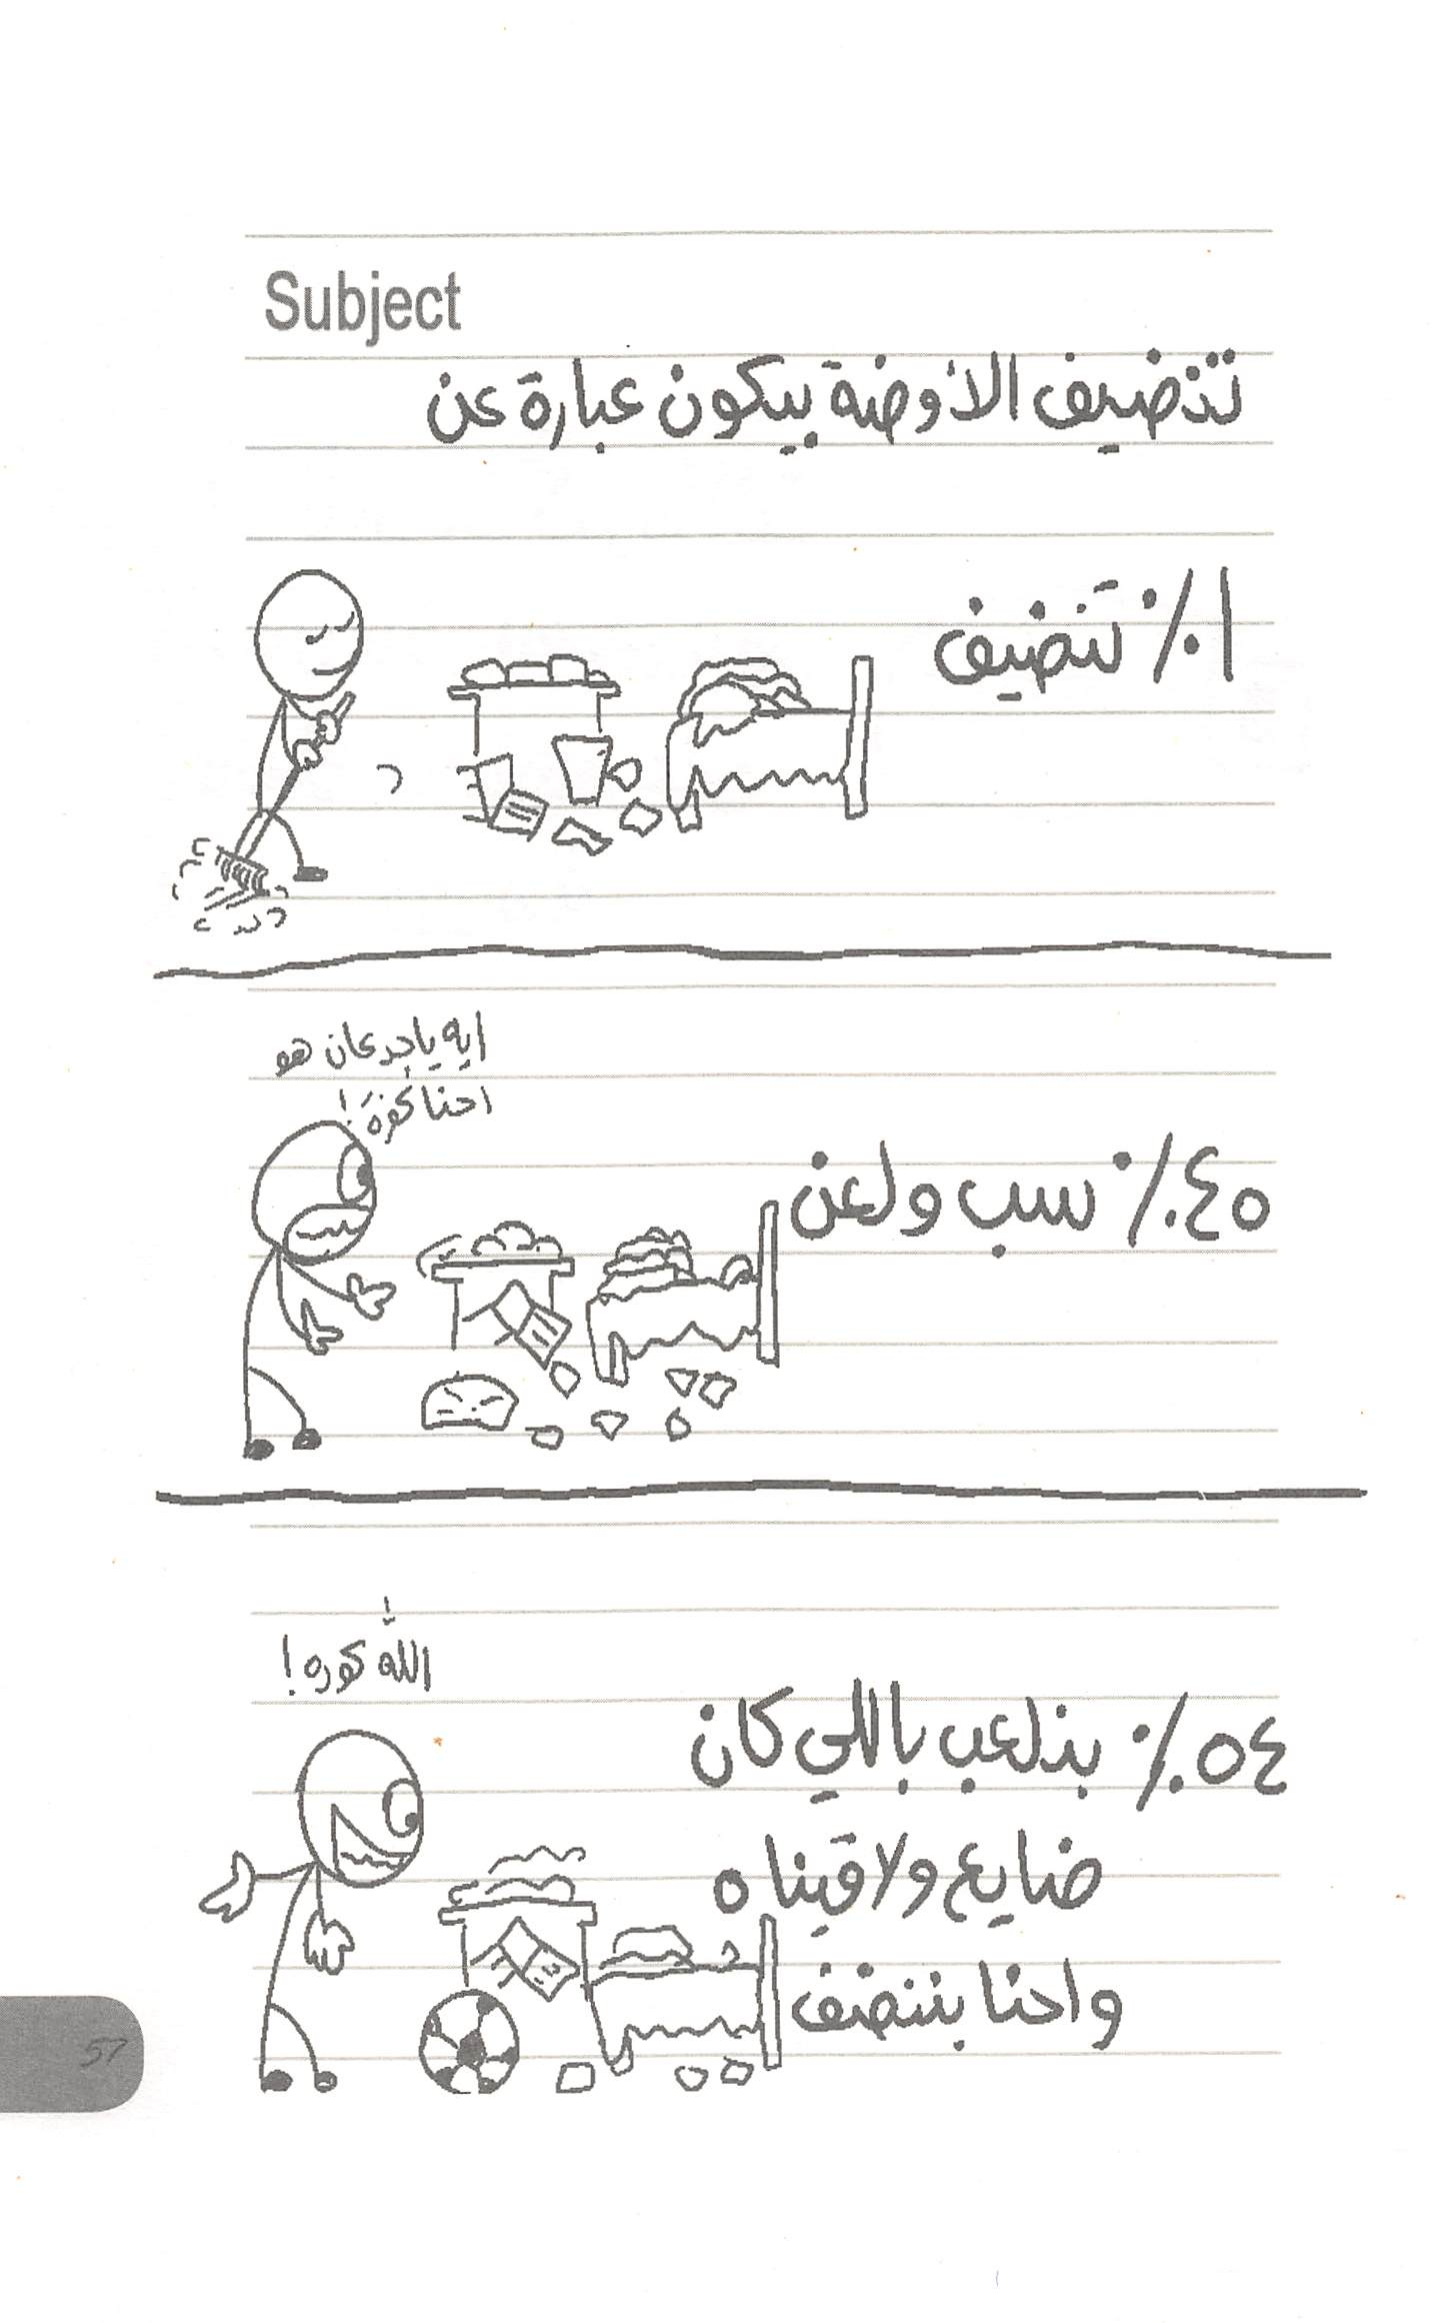 Subject
تنضيف الأوضة بيكون عبارة عن
١٪ تنضيف
ايه يا جدعان هو
احنا كفرة!
٤٥٪ سب ولعن
الله كوره!
٥٤٪ بنلعب باللي كان
ضايع ولاقيناه
واحنا بننضف
57